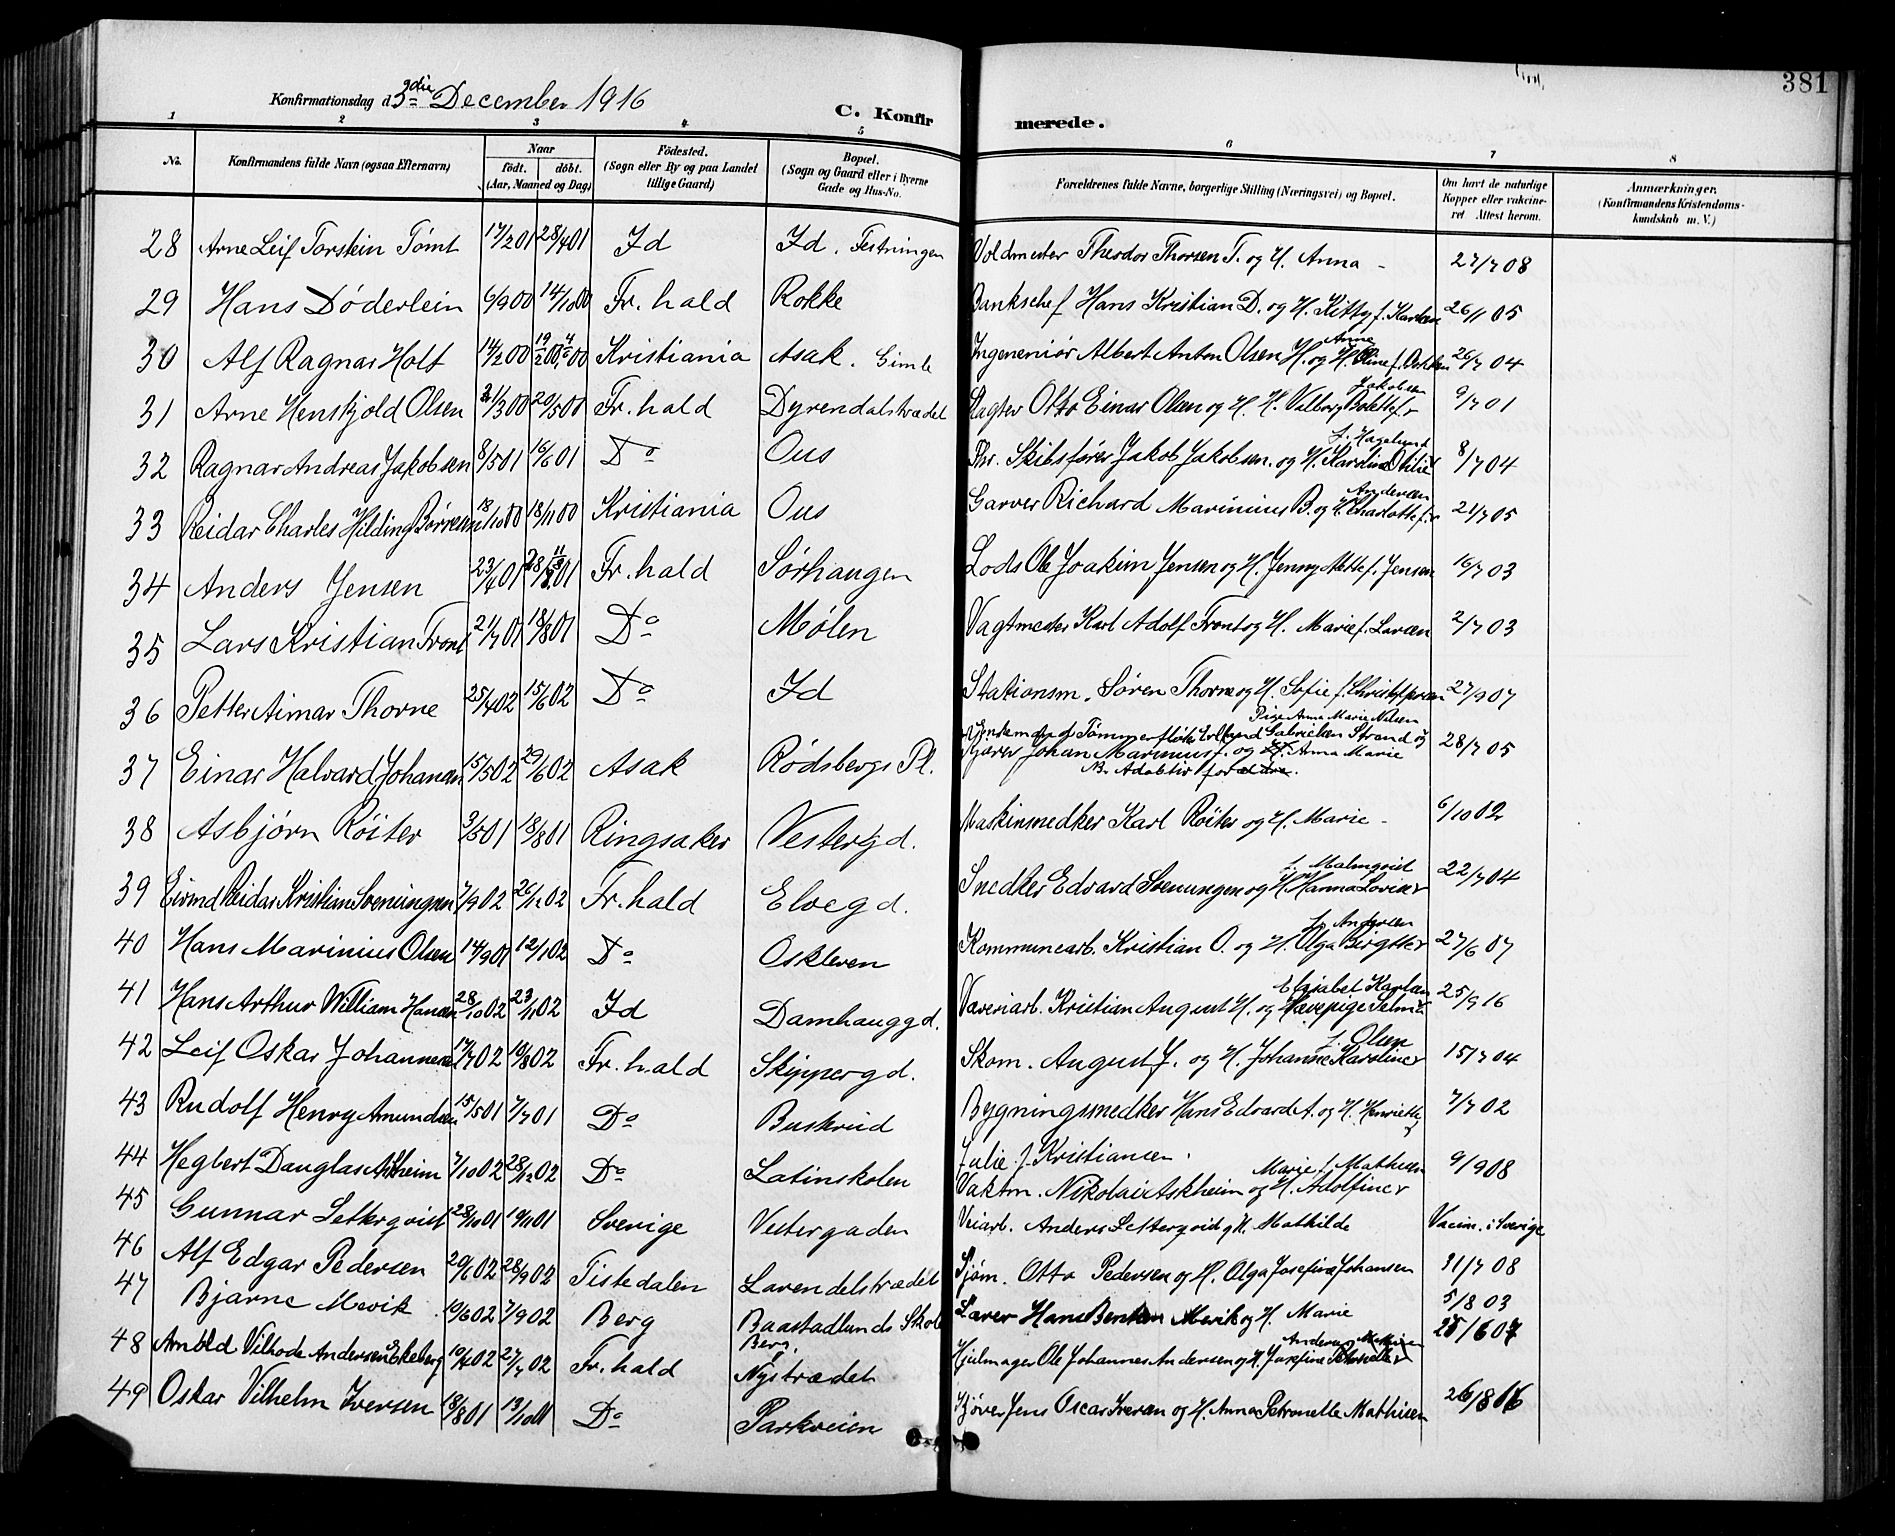 381
Konfirmationsdag d. 3die December 1916
C. Konfirmerede.
1 2 3 4 5 6 7 8
No. Konfirmandens fulde Navn (ogsaa Efternavn) Naar født. døbt. (Aar, Maaned og Dag) Födested. (Sogn eller By og paa Landet tillige Gaard) Bopæl. (Sogn og Gaard eller i Byerne Gade og Hus-No. Forældrenes fulde Navne, borgerlige Stilling (Næringsvei) og Bopæl. Om havt de naturlige Kopper eller vakcineret. Attest herom. Anmærkninger. (Konfirmandens Kristendomskundskab m. V.)
28 Arne Leif Torstein Tømt 17/2 01 28/4 01 Id Id. Festningen Voldmester Theodor Thorsen T. og H. Anna - 27/7 08
29 Hans Døderlein 6/9 00 14/10 00 Fr.hald Rokke Bankchef Hans Kristian D. og H. Kitty f. 26/11 05
30 Alf Ragnar Holt 14/2 00 Kristiania Asak. Gimle Ingeneniør Albert Anton Olsen H. og H. Anne 26/7 04
31 Arne Henskjold Olsen 31/3 00 20/5 00 Fr.hald Dyrendalstrædet Slagter Otto Einar Olsen og H. Valborg Bolette f. Jakobsen 9/7 01
32 Ragnar Andreas Jakobsen 8/5 01 16/6 01 Do Ous Fhr. Skibsfører Jakob Jakobsen. og H. Karoline Otilie f. Hagelund 8/7 04
33 Reidar Charles Hilding Børresen 18/10 00 18/11 00 Kristiania Ous Garver Richard Marinius B. og H. Charlotte f. Andersen 21/7 05
34 Anders Jensen Fr.hald Sørhaugen Lods Ole Joakim Jensen og H. Jenny Mette f. Jensen 16/7 03
35 Lars Kristian Tront 21/7 01 18/8 01 Do Mølen Vagtmester Karl Adolf Tront og H. Marie f. Larsen 2/7 03
36 Petter Aimar Thorne 25/4 02 15/6 02 Do Id Stationsm. Søren Thorne og H. Sofie f. Christoffersen 27/9 07
37 Einar Halvard Johansen 15/5 02 29/6 02 Asak Rødsbergs Pl. Ungkarl Tømmerfløter Gabrielsen Strand og Pige Anna Marie Nilsen
Kjører Johan Marinius J. og H. Anna Marie 28/7 05
Ab. Adoptivforældre.
38 Asbjørn Røiter 3/5 01 18/8 01 Ringsaker Vestergd. Maskinsnedker Karl Røiter og H. Marie - 6/10 02
39 Eivind Reidar Kristian Svenungsen 7/9 02 26/12 02 Fr.hald Elvegd. Snedker Edvard Svenungsen og H. Hanna Lovise f. Malmqvist 22/7 04
40 Hans Marinius Olsen 14/9 01 12/1 02 Do Oskleven Kommunearb. Kristian O. og H. Olga Birgitte f. Andersen 27/6 07
41 Hans Arthur William Hansen 28/10 02 23/11 02 Id Damhauggd. Væveriarb. Kristian August H. og Vævepige Selma Elisabet Karlsen 25/9 16
42 Leif Oskar Johannesen 17/7 02 10/8 02 Fr.hald Skippergd. Skom. August J. og H. Johanne Karoline f. Olsen 15/7 04
43 Rudolf Henry Amundsen 15/5 01 7/7 01 Do Buskrud Bygningssnedker Hans Edvard A. og H. Henriette 7/7 02
Julie f. Kristiansen.
44 Hegbert Dauglas Askheim 7/10 02 28/12 02 Do Latinskolen Vaktm. Nikolai Askheim og H. Adolfine Marie f. Mathisen 9/9 08
45 Gunnar Setterqvist 28/10 01 Sverige Vestergaden Veiarb. Anders Setterqvist og H. Mathilde Vaccin. i Sverige
46 Alf Edgar Pedersen 20/6 02 28/9 02 Tistedalen Lavendelstrædet Sjøm. Otto Pedersen og H. Olga Josefine Johansen 31/7 08
47 Bjarne Mevik 10/6 02 7/9 02 Berg Baastadlunds Skole Berg. Lærer Hans Mevik og H. Marie 5/8 03
48 Arnold Vilhode Andersen Ekeberg 27/7 02 Fr.hald Nystrædet Hjulmager Ole Johannes Andersen og H. Josefine 25/6 07
49 Oskar Vilhelm Iversen 18/8 01 13/10 01 Do Parkveien Kjører Jens Oscar Iversen og H. Anna Petronelle Mathisen 26/8 06